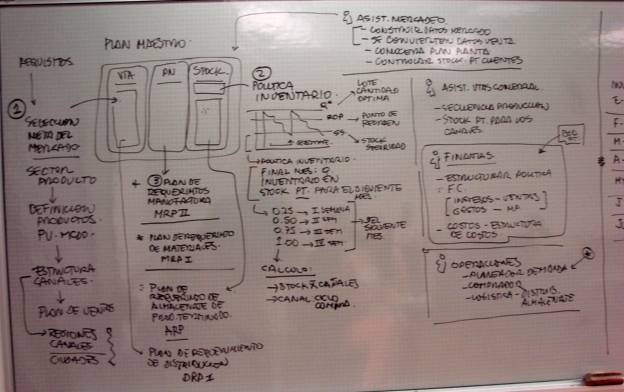 PLAN MAESTRO
REQUISITOS
VTA
PN
STOCK
1
SELECCION
META DEL
MERCADO
SECTOR
PRODUCTO
DEFINICION
PRODUCTOS.
PV. MCDO
ESTRUCTURA
CANALES.
PLAN DE VENTAS
REGIONES
CANALES
CIUDADES
3 PLAN DE
REQUERIMTOS
MANUFACTURA
MRP II
* PLAN DE REQUERIMTO
DE MATERIALES.
MRP I
PLAN DE
REQUERIDO DE
ALMACENATE DE
PROD. TERMINADO.
ARP
PLAN DE REQUERIMIENTO
DE DISTRIBUCION
DRP I
2
POLITICA
INVENTARIO.
LOTE
CANTIDAD
OPTIMA
ROP
PUNTO DE
REORDEN
SS
STOCK
SEGURIDAD
POLITICA INVENTARIO.
FINAL MES: 0
INVENTARIO EN
STOCK PT. PARA EL SIGUIENTE
MES.
0.25 → I SEMANA
0.50 → II SEM
0.75 → III SEM
1.00 → IV SEM
DEL
SIGUIENTE
MES.
CALCULO:
→ STOCK X CANALES
→ CANAL CICLO
COMPRA.
ASIST. MERCADEO
- CONSTRUIR DATOS MERCADO
- SE CONVIERTEN DATOS VENTA
- CONOCER PLAN PLANTA
- CONTROLAR STOCK PT CLIENTES
ASIST. VTAS COMERCIAL.
- SECUENCIA PRODUCCION
- STOCK PT. PARA LOS
CANALES.
FINANZAS
- ESTRUCTURAR POLITICA
F.C.
INGRESOS - VENTAS
GASTOS - MP
- COSTOS - ESTRUCTURA
DE COSTOS.
OPERACIONES
- PLANEADOR DEMANDA
- COMPRADOR
- LOGISTICA - DISTRIB.
ALMACENATE